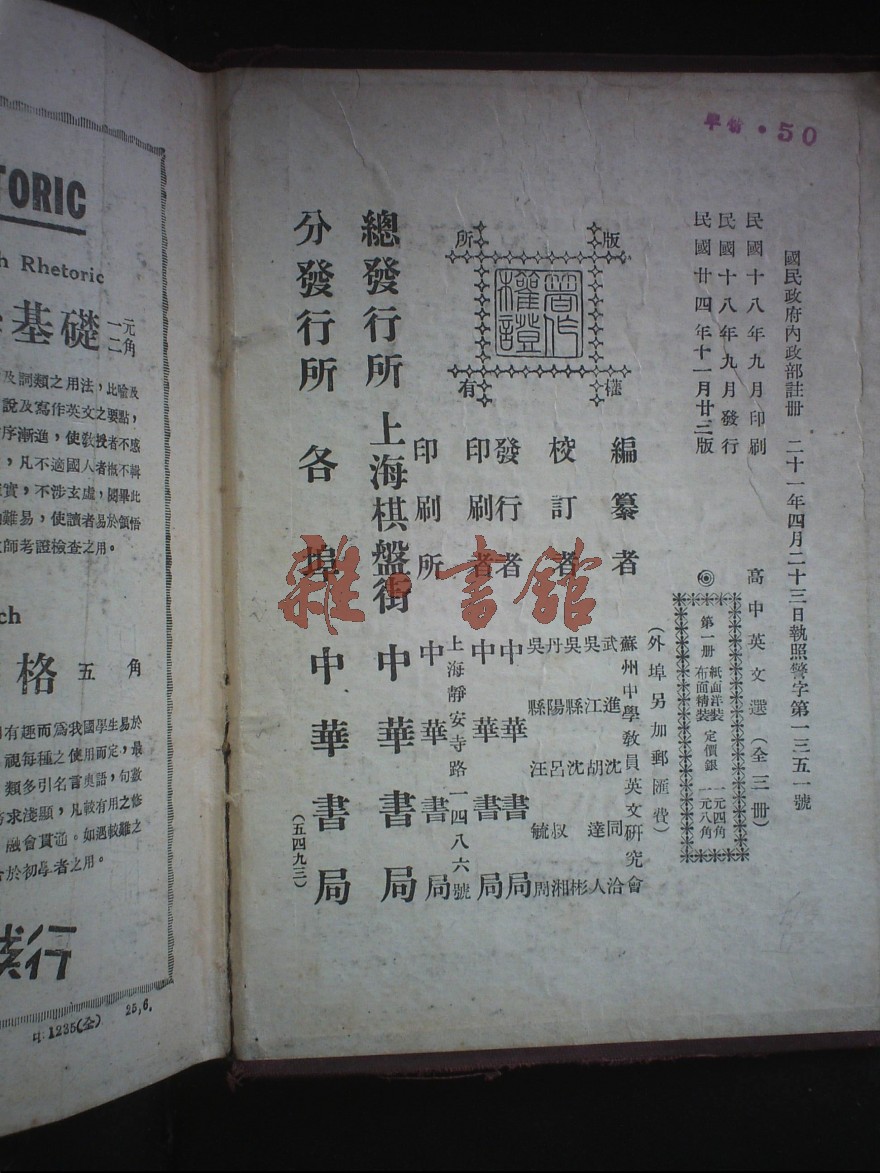 單價·50
國民政府內政部註冊 二十一年四月二十三日執照警字第一三五一號
民國十八年九月印刷
民國十八年九月發行
民國廿四年十一月廿三版
高中英文選(全三冊)
◎
第一冊
紙面洋裝
布面精裝
定價銀
一元四角
一元八角
(外埠另加郵匯費)
版權所有
著作權證
編纂者 蘇州中學教員英文研究會
校訂者
武進沈同洽
吳江胡達人
吳縣沈 彬
丹陽呂叔湘
吳縣汪毓周
發行者 中華書局
印刷者 中華書局
印刷所
上海靜安寺路一四八六號
中華書局
總發行所 上海棋盤街 中華書局
分發行所 各埠 中華書局
(五四九三)
雜·書館
TORIC
h Rhetoric
基礎
一元二角
及詞類之用法,比喻及
說及寫作英文之要點,
序漸進,使教授者不感
,凡不適國人者槪不輯
實,不涉玄虛,閱畢此
難易,使讀者易於領悟
師考證檢查之用。
ch
格 五角
有趣而爲我國學生易於
視每種之使用而定,最
類多引名言奧語,句數
求淺顯,凡較有用之修
融會貫通。如遇較難之
於初學者之用。
行
1235(全) 25,6.